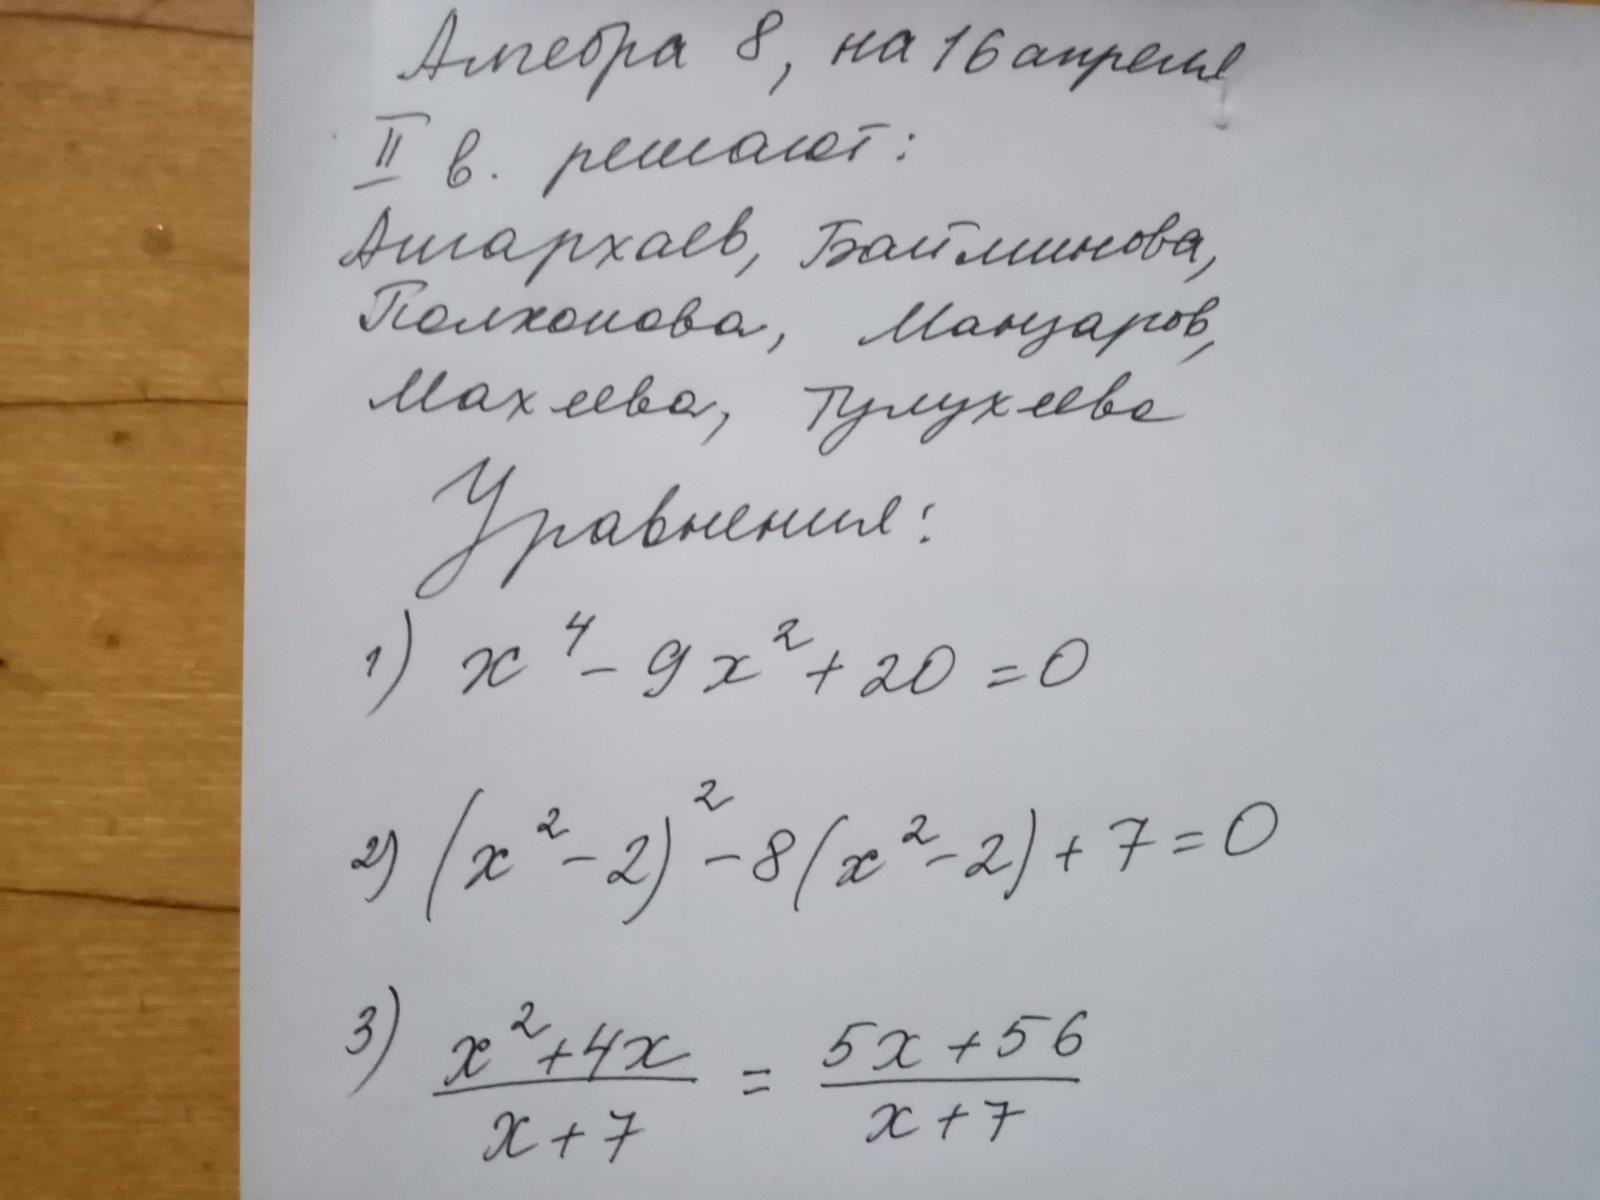 Алгебра 8, на 16 апреля
II в. решают:
Ашархаев, Байминова,
Полхонова, Манзаров,
Махеева, Тулухеева
Уравнения:
1) x⁴ - 9x² + 20 = 0
2) (x² - 2)² - 8(x² - 2) + 7 = 0
3) (x² + 4x)/(x + 7) = (5x + 56)/(x + 7)